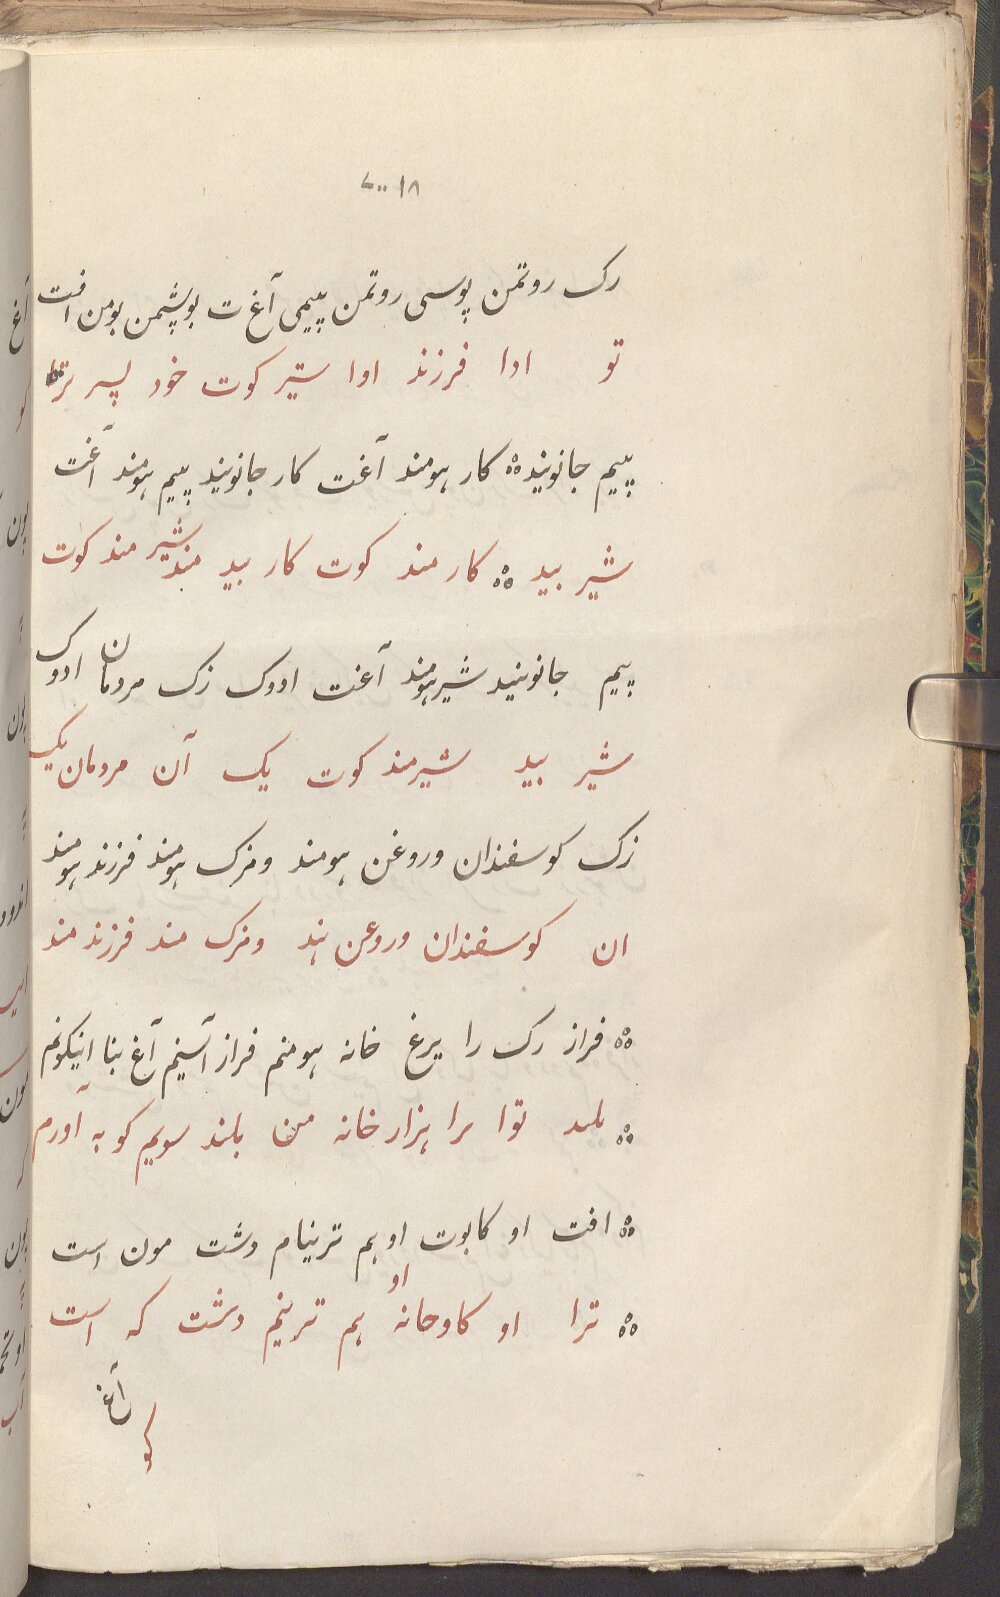 رک روتمن پوسی روتمن پیمی آغ ت بوپشمن بومن افت
تو ادا فرزند اوا ستیر کوت خود پسر ترا
پیم جانویند ه‍ کار هومند آغت کار جانویند پیم هومند آغت
شیر بید ه‍ کار مند کوت کار بید مند شیر مند کوت
پیم جانویند شیرهومند آغت ادوک زک مردمان ادوک
شیر بید شیرمند کوت یک آن مردمان یک
زک کوسفندان وروغن هومند ومزک هومند فرزند هومند
ان کوسفندان وروعن هند ومزک مند فرزند مند
فراز رک را یرغ خانه هومنم فراز آغ بنا
بلند توا مرا هزار خانه من بلند سویم کو به آورم
افت او کابوت او هم ترینام دشت مون است
ترا او کاوحانه او هم ترینم دشت که است
آغ
کو